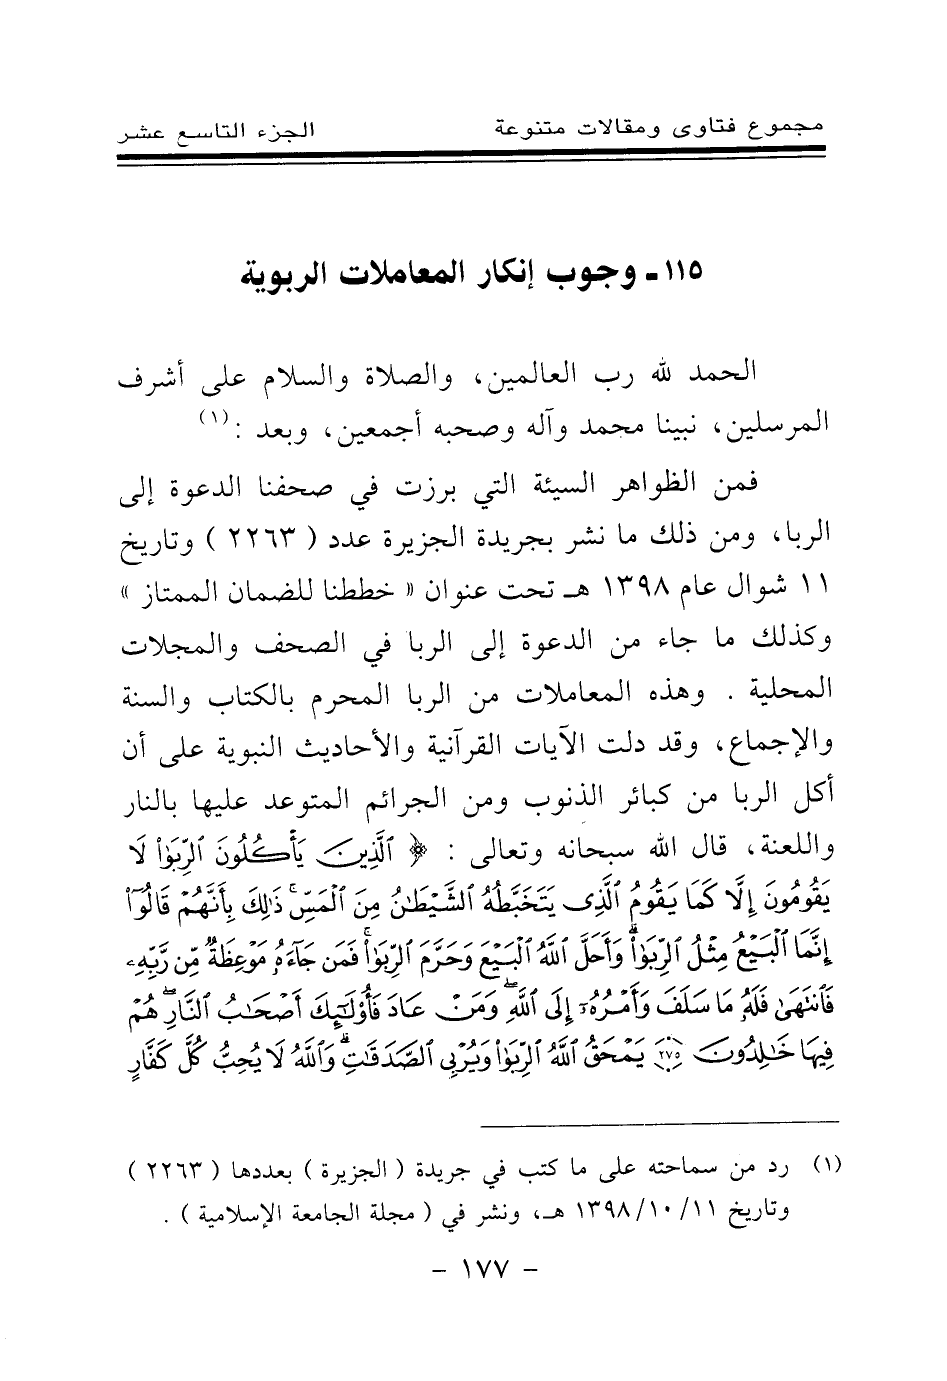 مجموع فتاوى ومقالات متنوعة الجزء التاسع عشر
١١٥ - وجوب إنكار المعاملات الربوية
الحمد لله رب العالمين، والصلاة والسلام على أشرف
المرسلين، نبينا محمد وآله وصحبه أجمعين، وبعد :(١)
فمن الظواهر السيئة التي برزت في صحفنا الدعوة إلى
الربا، ومن ذلك ما نشر بجريدة الجزيرة عدد ( ٢٢٦٣ ) وتاريخ
١١ شوال عام ١٣٩٨ هـ تحت عنوان « خططنا للضمان الممتاز »
وكذلك ما جاء من الدعوة إلى الربا في الصحف والمجلات
المحلية . وهذه المعاملات من الربا المحرم بالكتاب والسنة
والإجماع، وقد دلت الآيات القرآنية والأحاديث النبوية على أن
أكل الربا من كبائر الذنوب ومن الجرائم المتوعد عليها بالنار
واللعنة، قال الله سبحانه وتعالى : ﴿ ٱلَّذِينَ يَأْكُلُونَ ٱلرِّبَوٰا۟ لَا
يَقُومُونَ إِلَّا كَمَا يَقُومُ ٱلَّذِى يَتَخَبَّطُهُ ٱلشَّيْطَٰنُ مِنَ ٱلْمَسِّ ۚ ذَٰلِكَ بِأَنَّهُمْ قَالُوٓا۟
إِنَّمَا ٱلْبَيْعُ مِثْلُ ٱلرِّبَوٰا۟ ۗ وَأَحَلَّ ٱللَّهُ ٱلْبَيْعَ وَحَرَّمَ ٱلرِّبَوٰا۟ ۚ فَمَن جَآءَهُۥ مَوْعِظَةٌ مِّن رَّبِّهِۦ
فَٱنتَهَىٰ فَلَهُۥ مَا سَلَفَ وَأَمْرُهُۥٓ إِلَى ٱللَّهِ ۖ وَمَنْ عَادَ فَأُو۟لَٰٓئِكَ أَصْحَٰبُ ٱلنَّارِ ۖ هُمْ
فِيهَا خَٰلِدُونَ ٢٧٥ يَمْحَقُ ٱللَّهُ ٱلرِّبَوٰا۟ وَيُرْبِى ٱلصَّدَقَٰتِ ۗ وَٱللَّهُ لَا يُحِبُّ كُلَّ كَفَّارٍ
(١) رد من سماحته على ما كتب في جريدة ( الجزيرة ) بعددها ( ٢٢٦٣ )
وتاريخ ١١/ ١٠/ ١٣٩٨ هـ، ونشر في ( مجلة الجامعة الإسلامية ) .
- ١٧٧ -